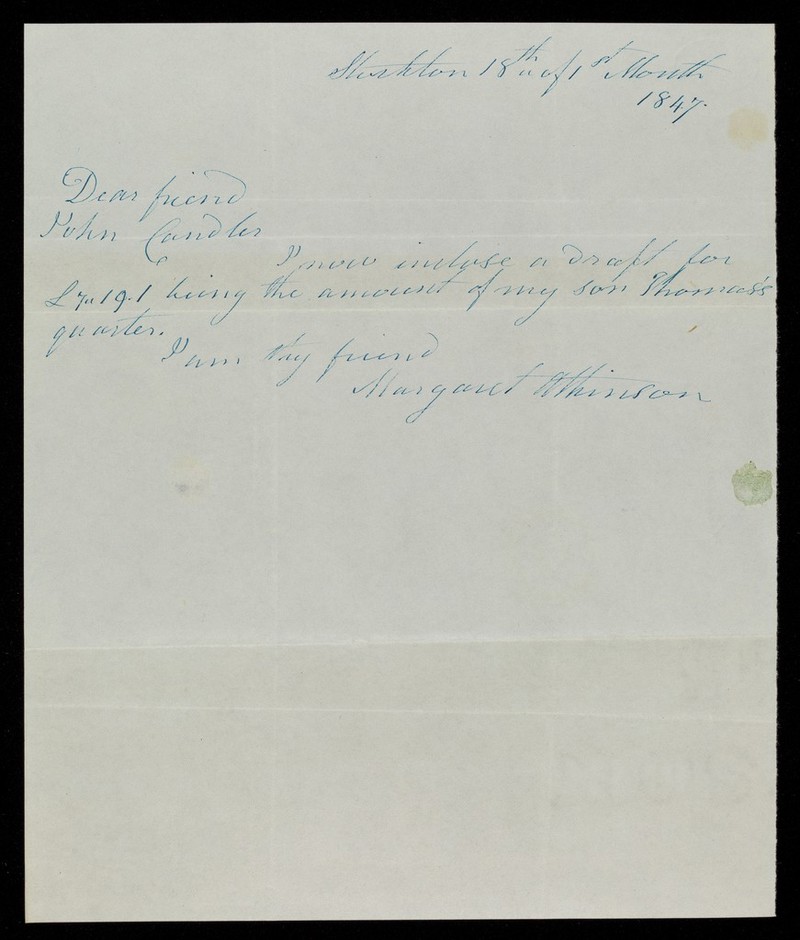 Stockton 18th of 1st Month
1847.
Dear friend
John Candler
I now inclose a draft for
£7.19.1 being the amount of my son Thomas's
quarter.
I am thy friend
Margaret Atkinson